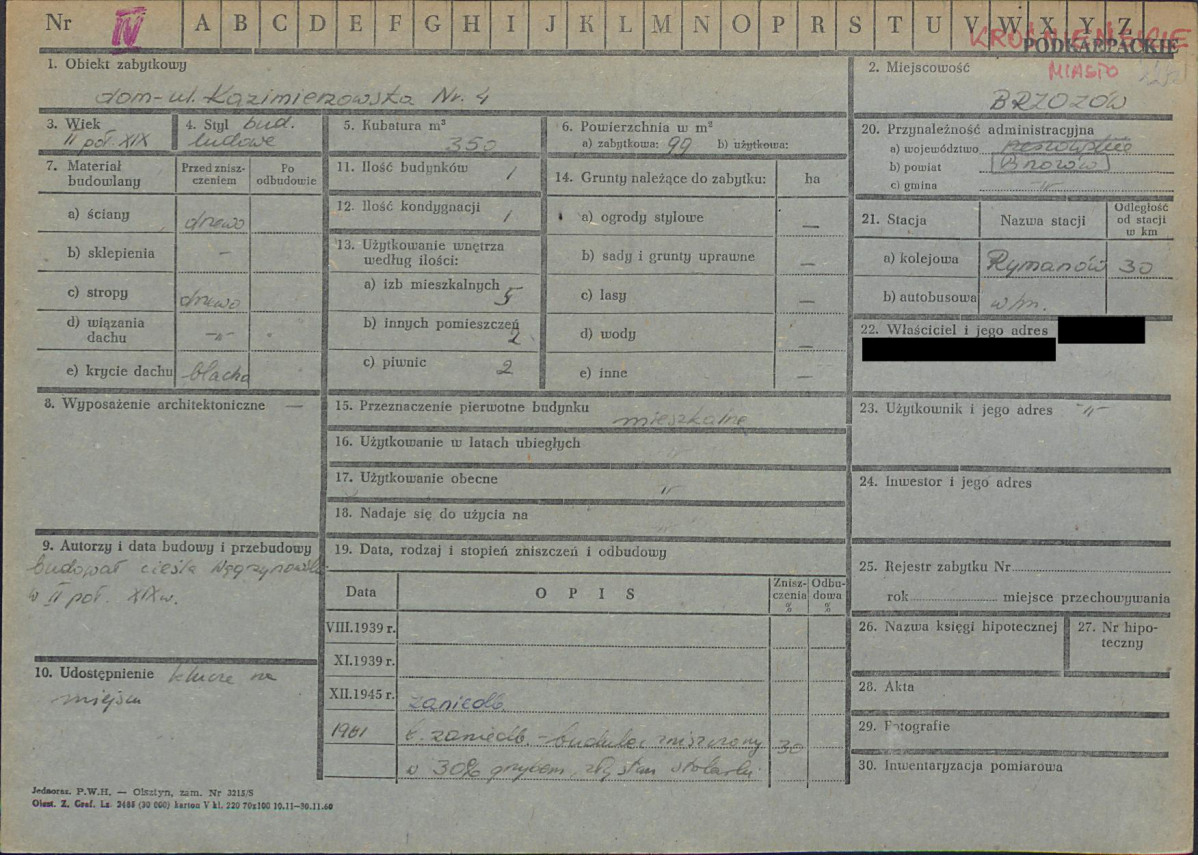 Nr IV A B C D E F G H I J K L M N O P R S T U V W X Y Z
KROŚNIEŃSKIE
PODKARPACKIE
MIASTO
1. Obiekt zabytkowy
dom - ul. Kazimierzowska Nr. 4
2. Miejscowość
BRZOZÓW
3. Wiek
II poł. XIX
4. Styl bud.
ludowe
5. Kubatura m³
350
6. Powierzchnia w m²
a) zabytkowa: 99 b) użytkowa:
20. Przynależność administracyjna
a) województwo rzeszowskie
b) powiat Brzozów
c) gmina -"-
7. Materiał budowlany
Przed znisz-
czeniem
Po
odbudowie
a) ściany drewo
b) sklepienia –
c) stropy drewo
d) wiązania
dachu -"-
e) krycie dachu blacha
11. Ilość budynków 1
12. Ilość kondygnacji 1
13. Użytkowanie wnętrza
według ilości:
a) izb mieszkalnych 5
b) innych pomieszczeń 2
c) piwnic 2
14. Grunty należące do zabytku: ha
a) ogrody stylowe —
b) sady i grunty uprawne —
c) lasy —
d) wody —
e) inne —
21. Stacja Nazwa stacji
Odległość
od stacji
w km
a) kolejowa Rymanów 30
b) autobusowa w/m.
22. Właściciel i jego adres
8. Wyposażenie architektoniczne —
15. Przeznaczenie pierwotne budynku
mieszkalne
16. Użytkowanie w latach ubiegłych
17. Użytkowanie obecne -"-
18. Nadaje się do użycia na
23. Użytkownik i jego adres -"-
24. Inwestor i jego adres
9. Autorzy i data budowy i przebudowy
budował cieśla
w II poł. XIX w.
19. Data, rodzaj i stopień zniszczeń i odbudowy
Data O P I S
Znisz-
czenia
%
Odbu-
dowa
%
VIII.1939 r.
XI.1939 r.
XII.1945 r. zaniedb.
1961 b. zaniedb. - budulec zniszczony 30
w 30% grzybem, zły stan stolarki.
25. Rejestr zabytku Nr
rok miejsce przechowywania
26. Nazwa księgi hipotecznej
27. Nr hipo-
teczny
10. Udostępnienie klucze na
miejscu
28. Akta
29. Fotografie
30. Inwentaryzacja pomiarowa
Jednoraz. P.W.H. — Olsztyn, zam. Nr 3215/S
Olszt. Z. Graf. Lz. 2485 (30 000) karton V kl. 220 70x100 10.11—30.11.60